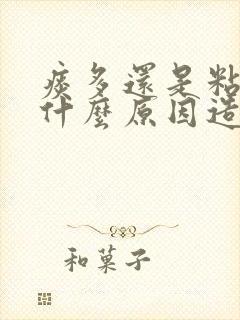 痰多還是粘
什麼原因造
和菓子